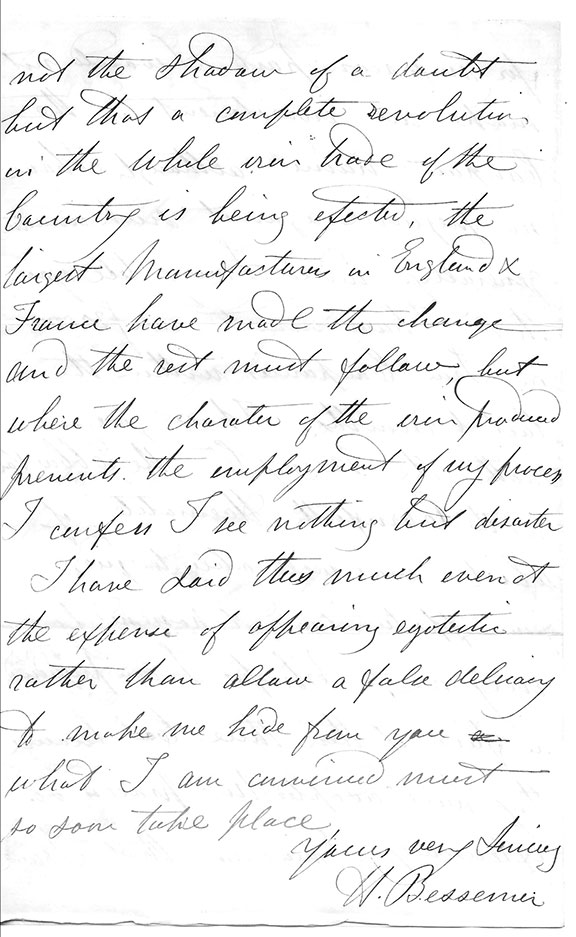 not the shadow of a doubt
but that a complete revolution
in the whole iron trade of the
Country is being efected, the
largest Manufacturers in England &
France have made the change
and the rest must follow, but
where the charater of the iron produced
prevents the employment of my process
I confess I see nothing but disaster
I have said thus much even at
the expense of appearing egotistic
rather than allow a false delicacy
to make me hide from you
what I am convinced must
so soon take place
Yours very Sincerely
H. Bessemer